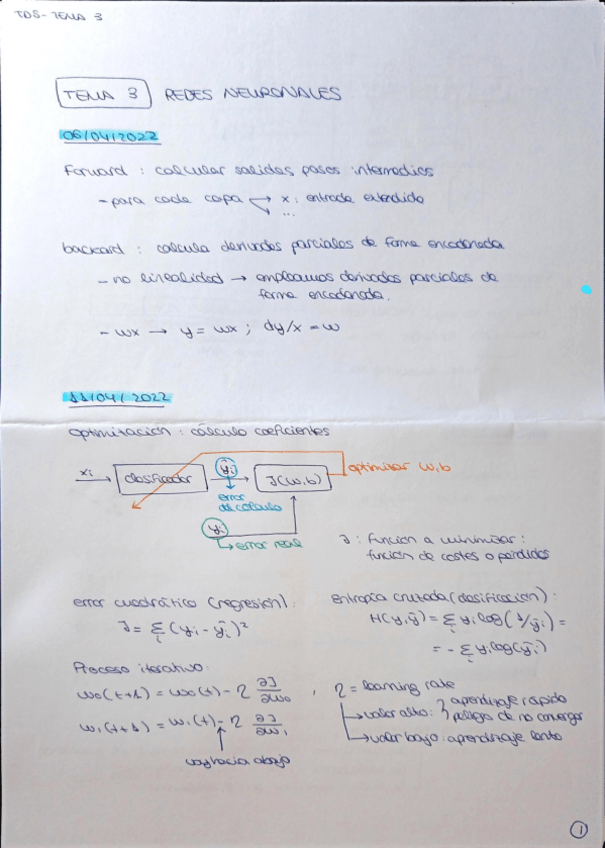 TDS - TEMA 3
TEMA 3 REDES NEURONALES
06/04/2022
Forward : calcular salidas pasos intermedios
- para cada capa → x : entrada extendida
...
backard : calcula derivadas parciales de forma encadenada
- no linealidad → empleamos derivadas parciales de
forma encadenada.
- wx → y = wx ; dy/x = w
11/04/2022
Optimización : cálculo coeficientes
xi → clasificador → ŷi → J(w,b) optimizar w,b
error
de cálculo
yi
↳ error real
J : función a minimizar :
función de costes o pérdidas
error cuadrático (regresión) :
J = Σi (yi - ŷi)²
entropía cruzada (clasificación) :
H(y,ŷ) = Σi yi log(1/ŷi) =
= - Σi yi log(ŷi)
Proceso iterativo:
w0(t+1) = w0(t) - η ∂J/∂w0 ,
w1(t+1) = w1(t) - η ∂J/∂w1
voy hacia abajo
η = learning rate
↳ valor alto : } aprendizaje rápido
peligro de no converger
↳ valor bajo : aprendizaje lento
1